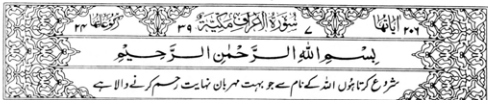 آیاتها ۲۰۶ ۷ سُوْرَةُ الْاَعْرَافِ مَكِّيَّةٌ ۳۹ رکوعاتها ۲۴
بِسْمِ اللهِ الرَّحْمٰنِ الرَّحِيْمِ
شروع کرتا ہوں اللہ کے نام سے جو بہت مہربان نہایت رحم کرنے والا ہے